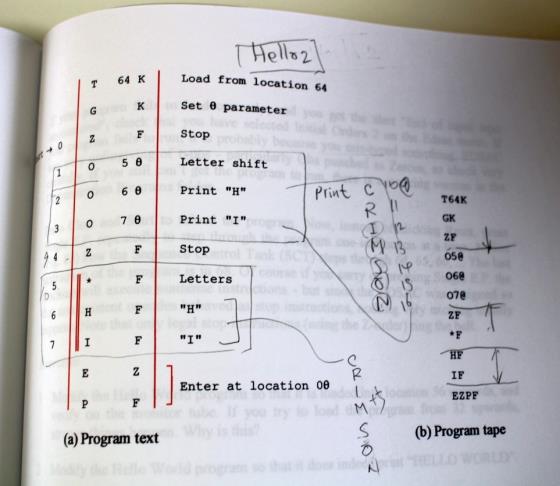 Hello2
T 64 K Load from location 64
G K Set θ parameter
0 Z F Stop
1 O 5 θ Letter shift
2 O 6 θ Print "H"
3 O 7 θ Print "I"
4 Z F Stop
5 * F Letters
6 H F "H"
7 I F "I"
E Z
Enter at location 0θ
P F
(a) Program text
Print C 10θ
R 11
I 12
M 13
S 14
O 15
N 16
C
R
I
M
S
O
N
T64K
GK
ZF
O5θ
O6θ
O7θ
ZF
*F
HF
IF
EZPF
(b) Program tape